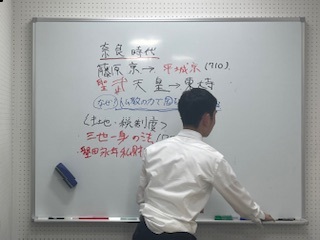 奈良時代
藤原京→平城京(710)
聖武天皇→東大寺
なぜ?仏教の力で国を
〈土地・税制度〉
三世一身の法(
・墾田永年私財